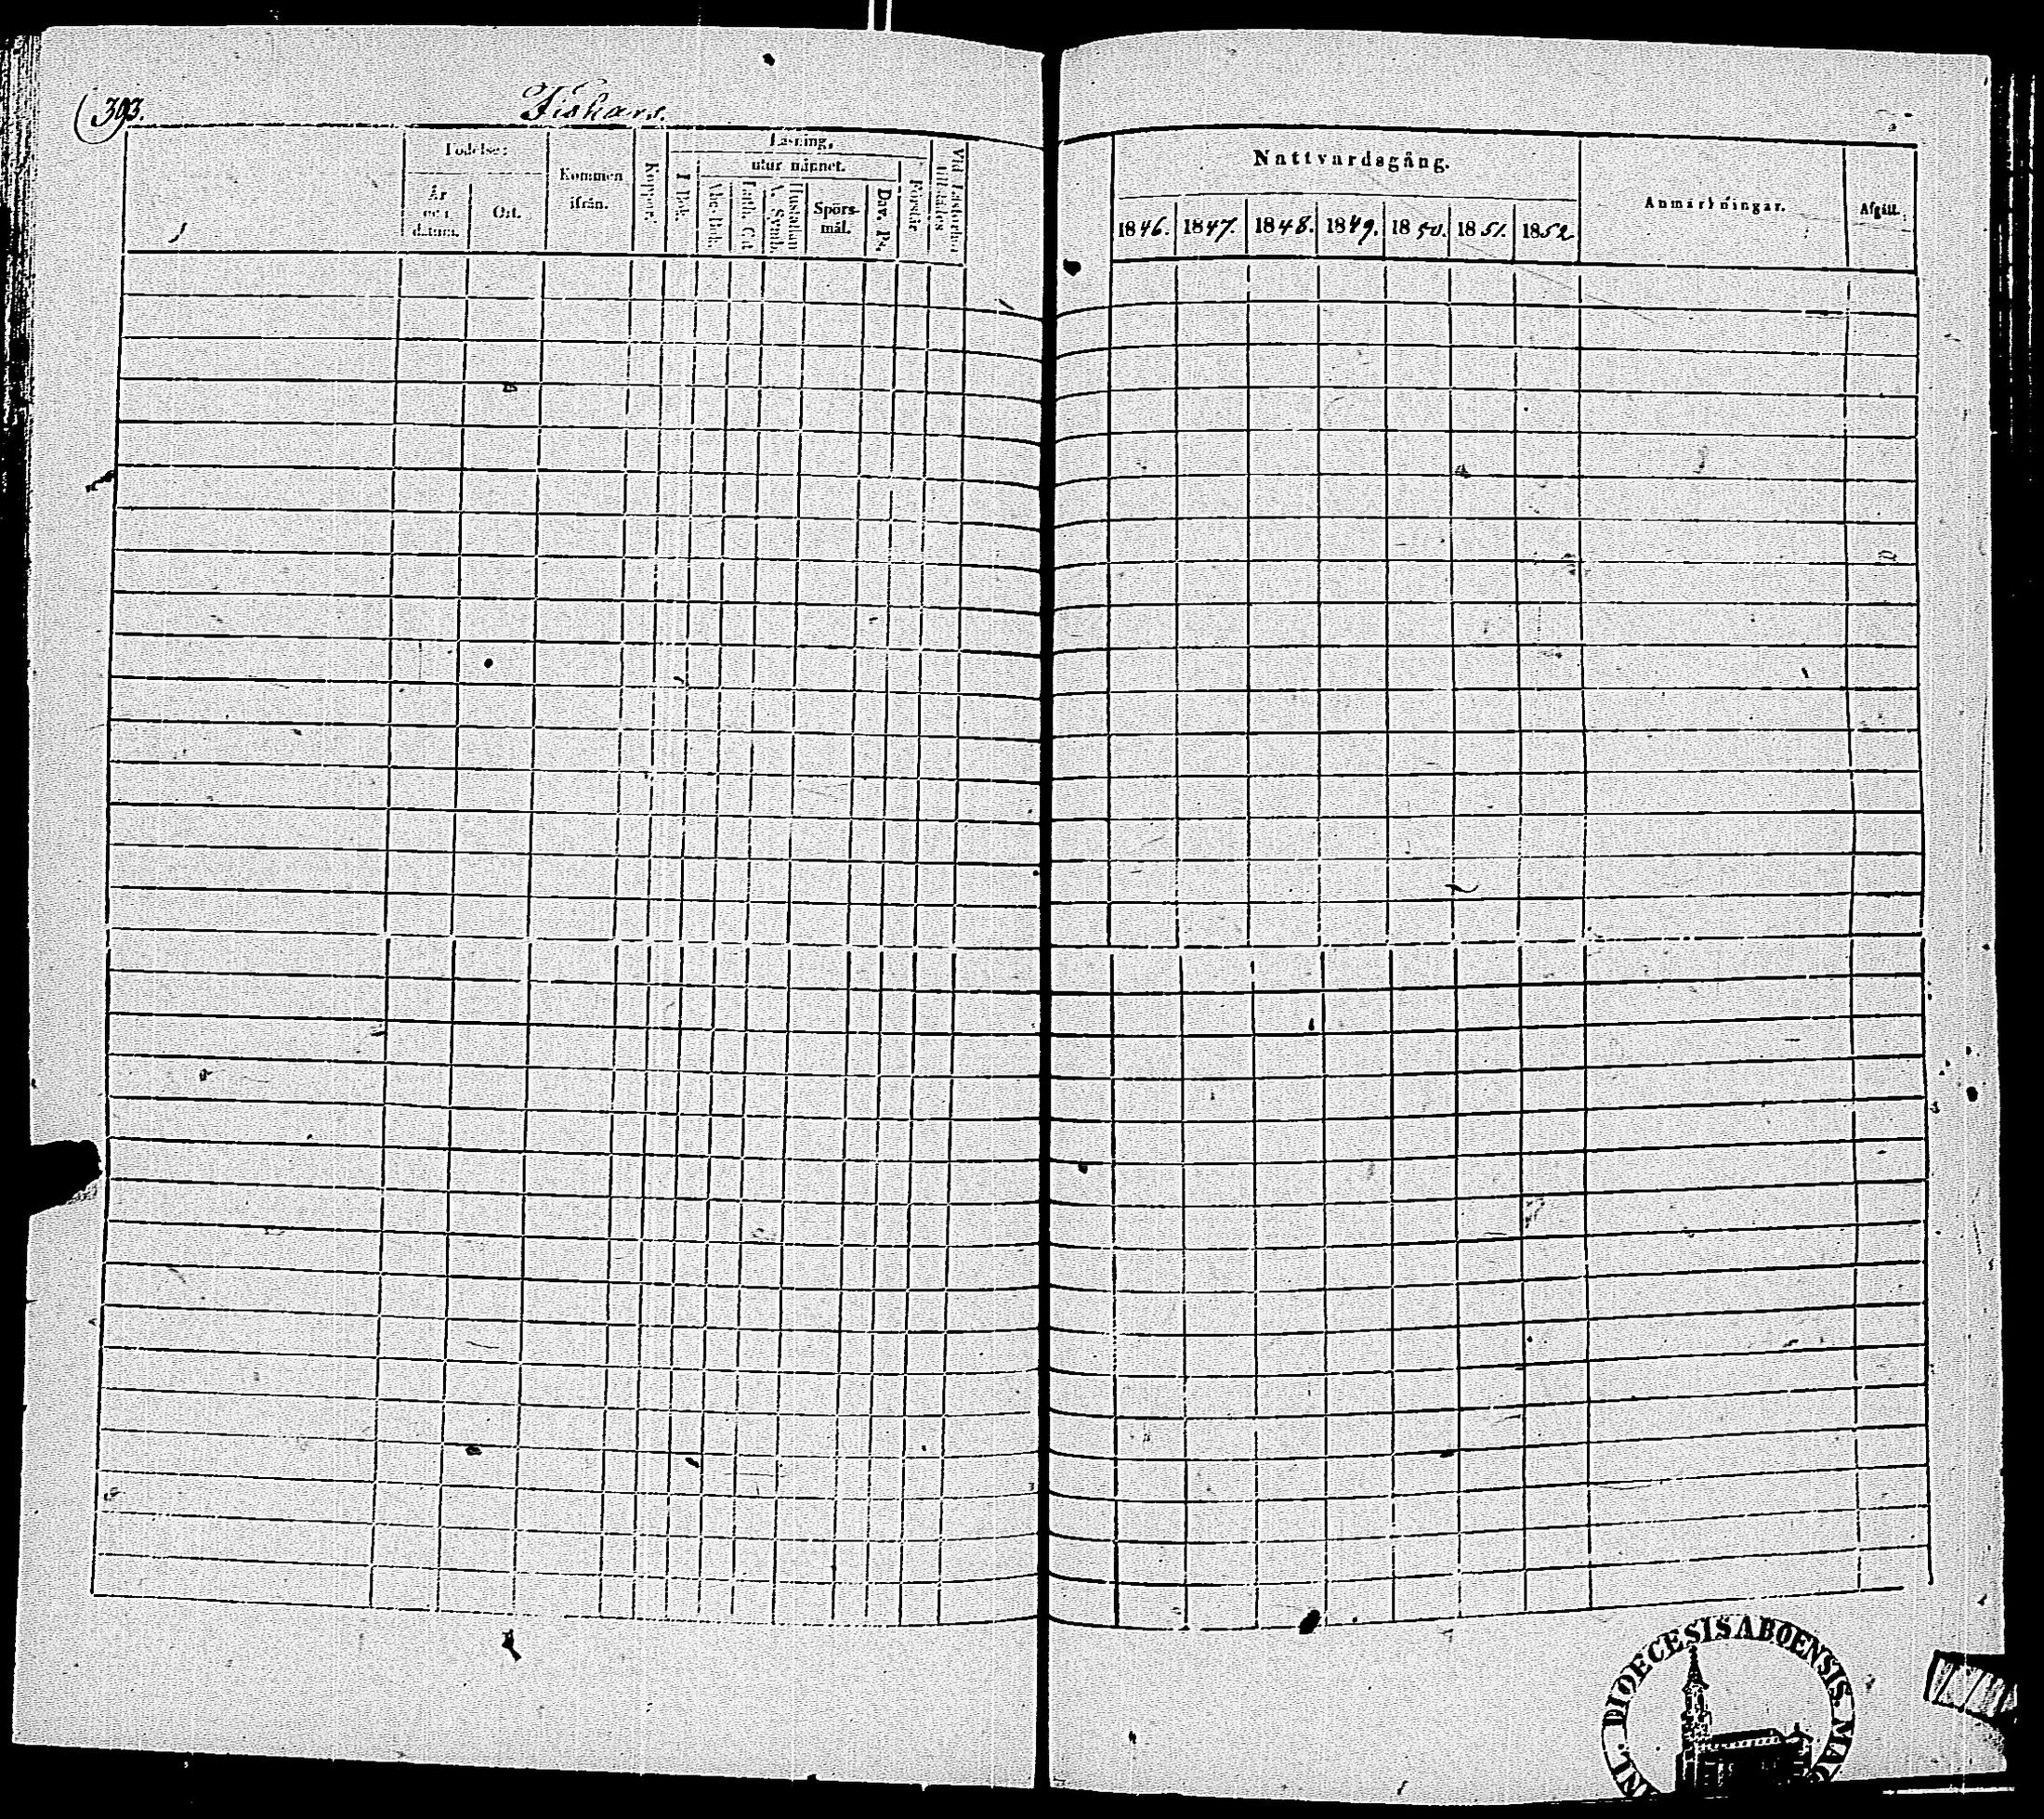 393.
Fiskars.
Födelse:
År och datum.
Ort.
Kommen ifrån.
Koppor.
Läsning,
I Bok.
utur minnet.
Abc-Bok.
Luth. Cat
Hustaflan A. Symb.
Spörsmål.
Dav. Ps.
Förstår
Nattvardsgång.
1846.
1847.
1848.
1849.
1850.
1851.
1852
Anmärkningar.
Afgått.
DIOECESIS ABOENSIS.